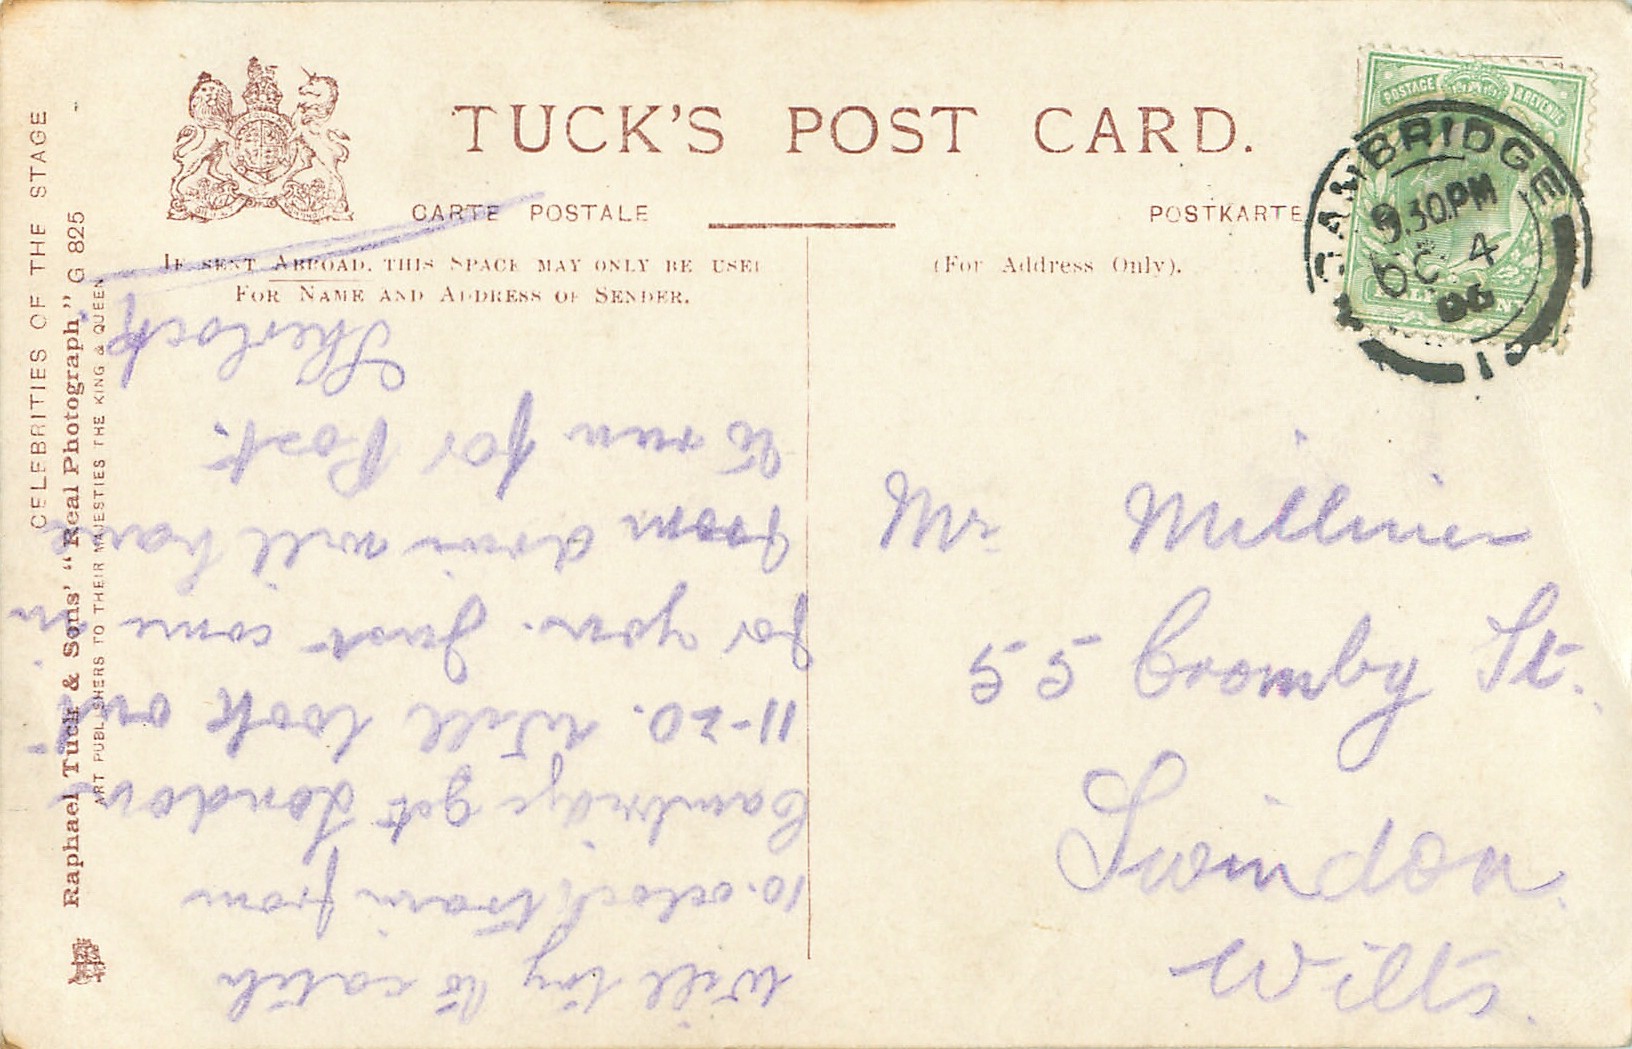 TUCK'S POST CARD.
CARTE POSTALE
POSTKARTE
IF SENT ABROAD, THIS SPACE MAY ONLY BE USED
FOR NAME AND ADDRESS OF SENDER.
(For Address Only).
POSTAGE & REVENUE
CAMBRIDGE
9.30PM
OC 4
06
CELEBRITIES OF THE STAGE
Raphael Tuck & Sons' "Real Photograph," G 825
ART PUBLISHERS TO THEIR MAJESTIES THE KING & QUEEN
Will try to catch
10. oclock train from
Cambridge get London
11-20. Will look out
for you. Just come in
from drive will have
to run for Post.
Sherlock
Mr Milliner
55 Crombey St.
Swindon
Wilts